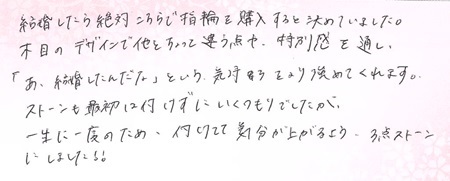 結婚したら絶対こちらで指輪を購入すると決めていました。
木目のデザインで他とちょっと違う点や、特別感を通し、
「あ、結婚したんだな」という気持ちをより強めてくれます。
ストーンも最初は付けずにいくつもりでしたが、
一生に一度のため、付けてて気分が上がるよう、3点ストーン
にしました!!